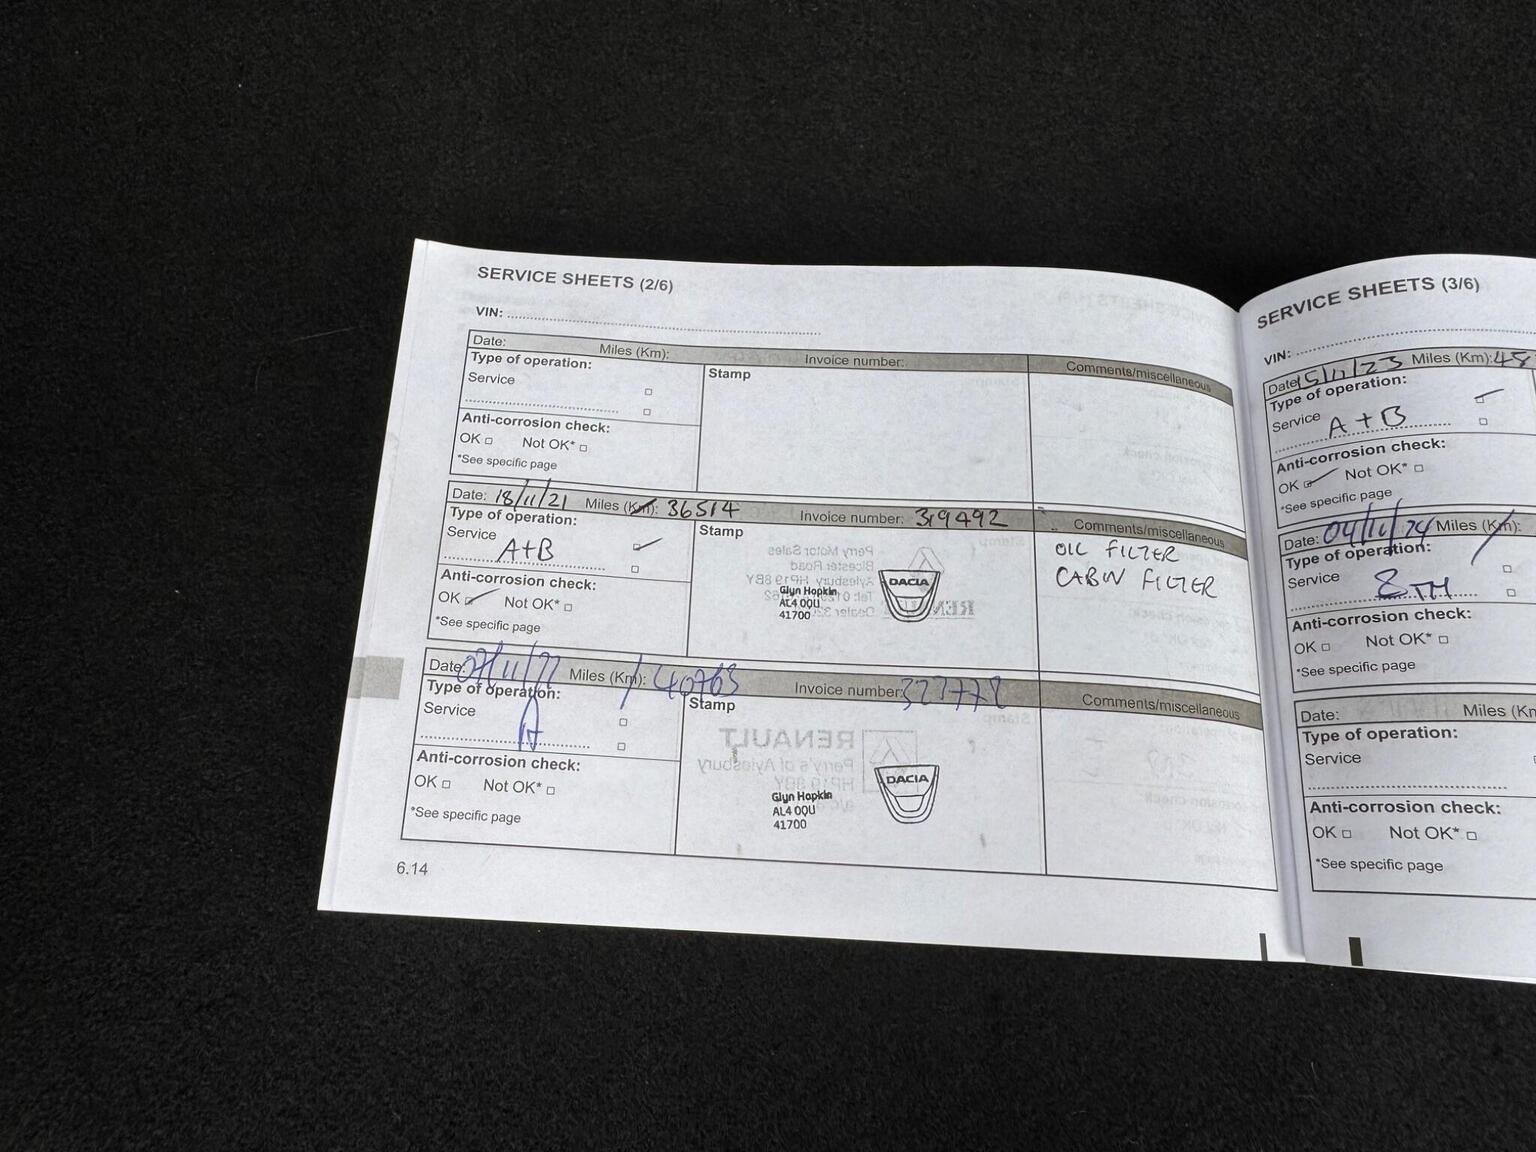 SERVICE SHEETS (2/6)
VIN:
Date: Miles (Km): Invoice number: Comments/miscellaneous
Type of operation: Stamp
Service
Anti-corrosion check:
OK Not OK*
*See specific page
Date: 18/11/21 Miles (Km): 36514 Invoice number: 319492 Comments/miscellaneous
Type of operation: Stamp
Service A+B
Anti-corrosion check:
OK Not OK*
*See specific page
DACIA
Glyn Hopkin
AL4 0QU
41700
OIL FILTER
CABIN FILTER
Date: 07/11/22 Miles (Km): 40763 Invoice number: 327772 Comments/miscellaneous
Type of operation: Stamp
Service A
Anti-corrosion check:
OK Not OK*
*See specific page
DACIA
Glyn Hopkin
AL4 0QU
41700
6.14
SERVICE SHEETS (3/6)
VIN:
Date: 15/11/23 Miles (Km): 48
Type of operation:
Service A+B
Anti-corrosion check:
OK Not OK*
*See specific page
Date: 04/11/24 Miles (Km):
Type of operation:
Service 8TH
Anti-corrosion check:
OK Not OK*
*See specific page
Date: Miles (Km
Type of operation:
Service
Anti-corrosion check:
OK Not OK*
*See specific page